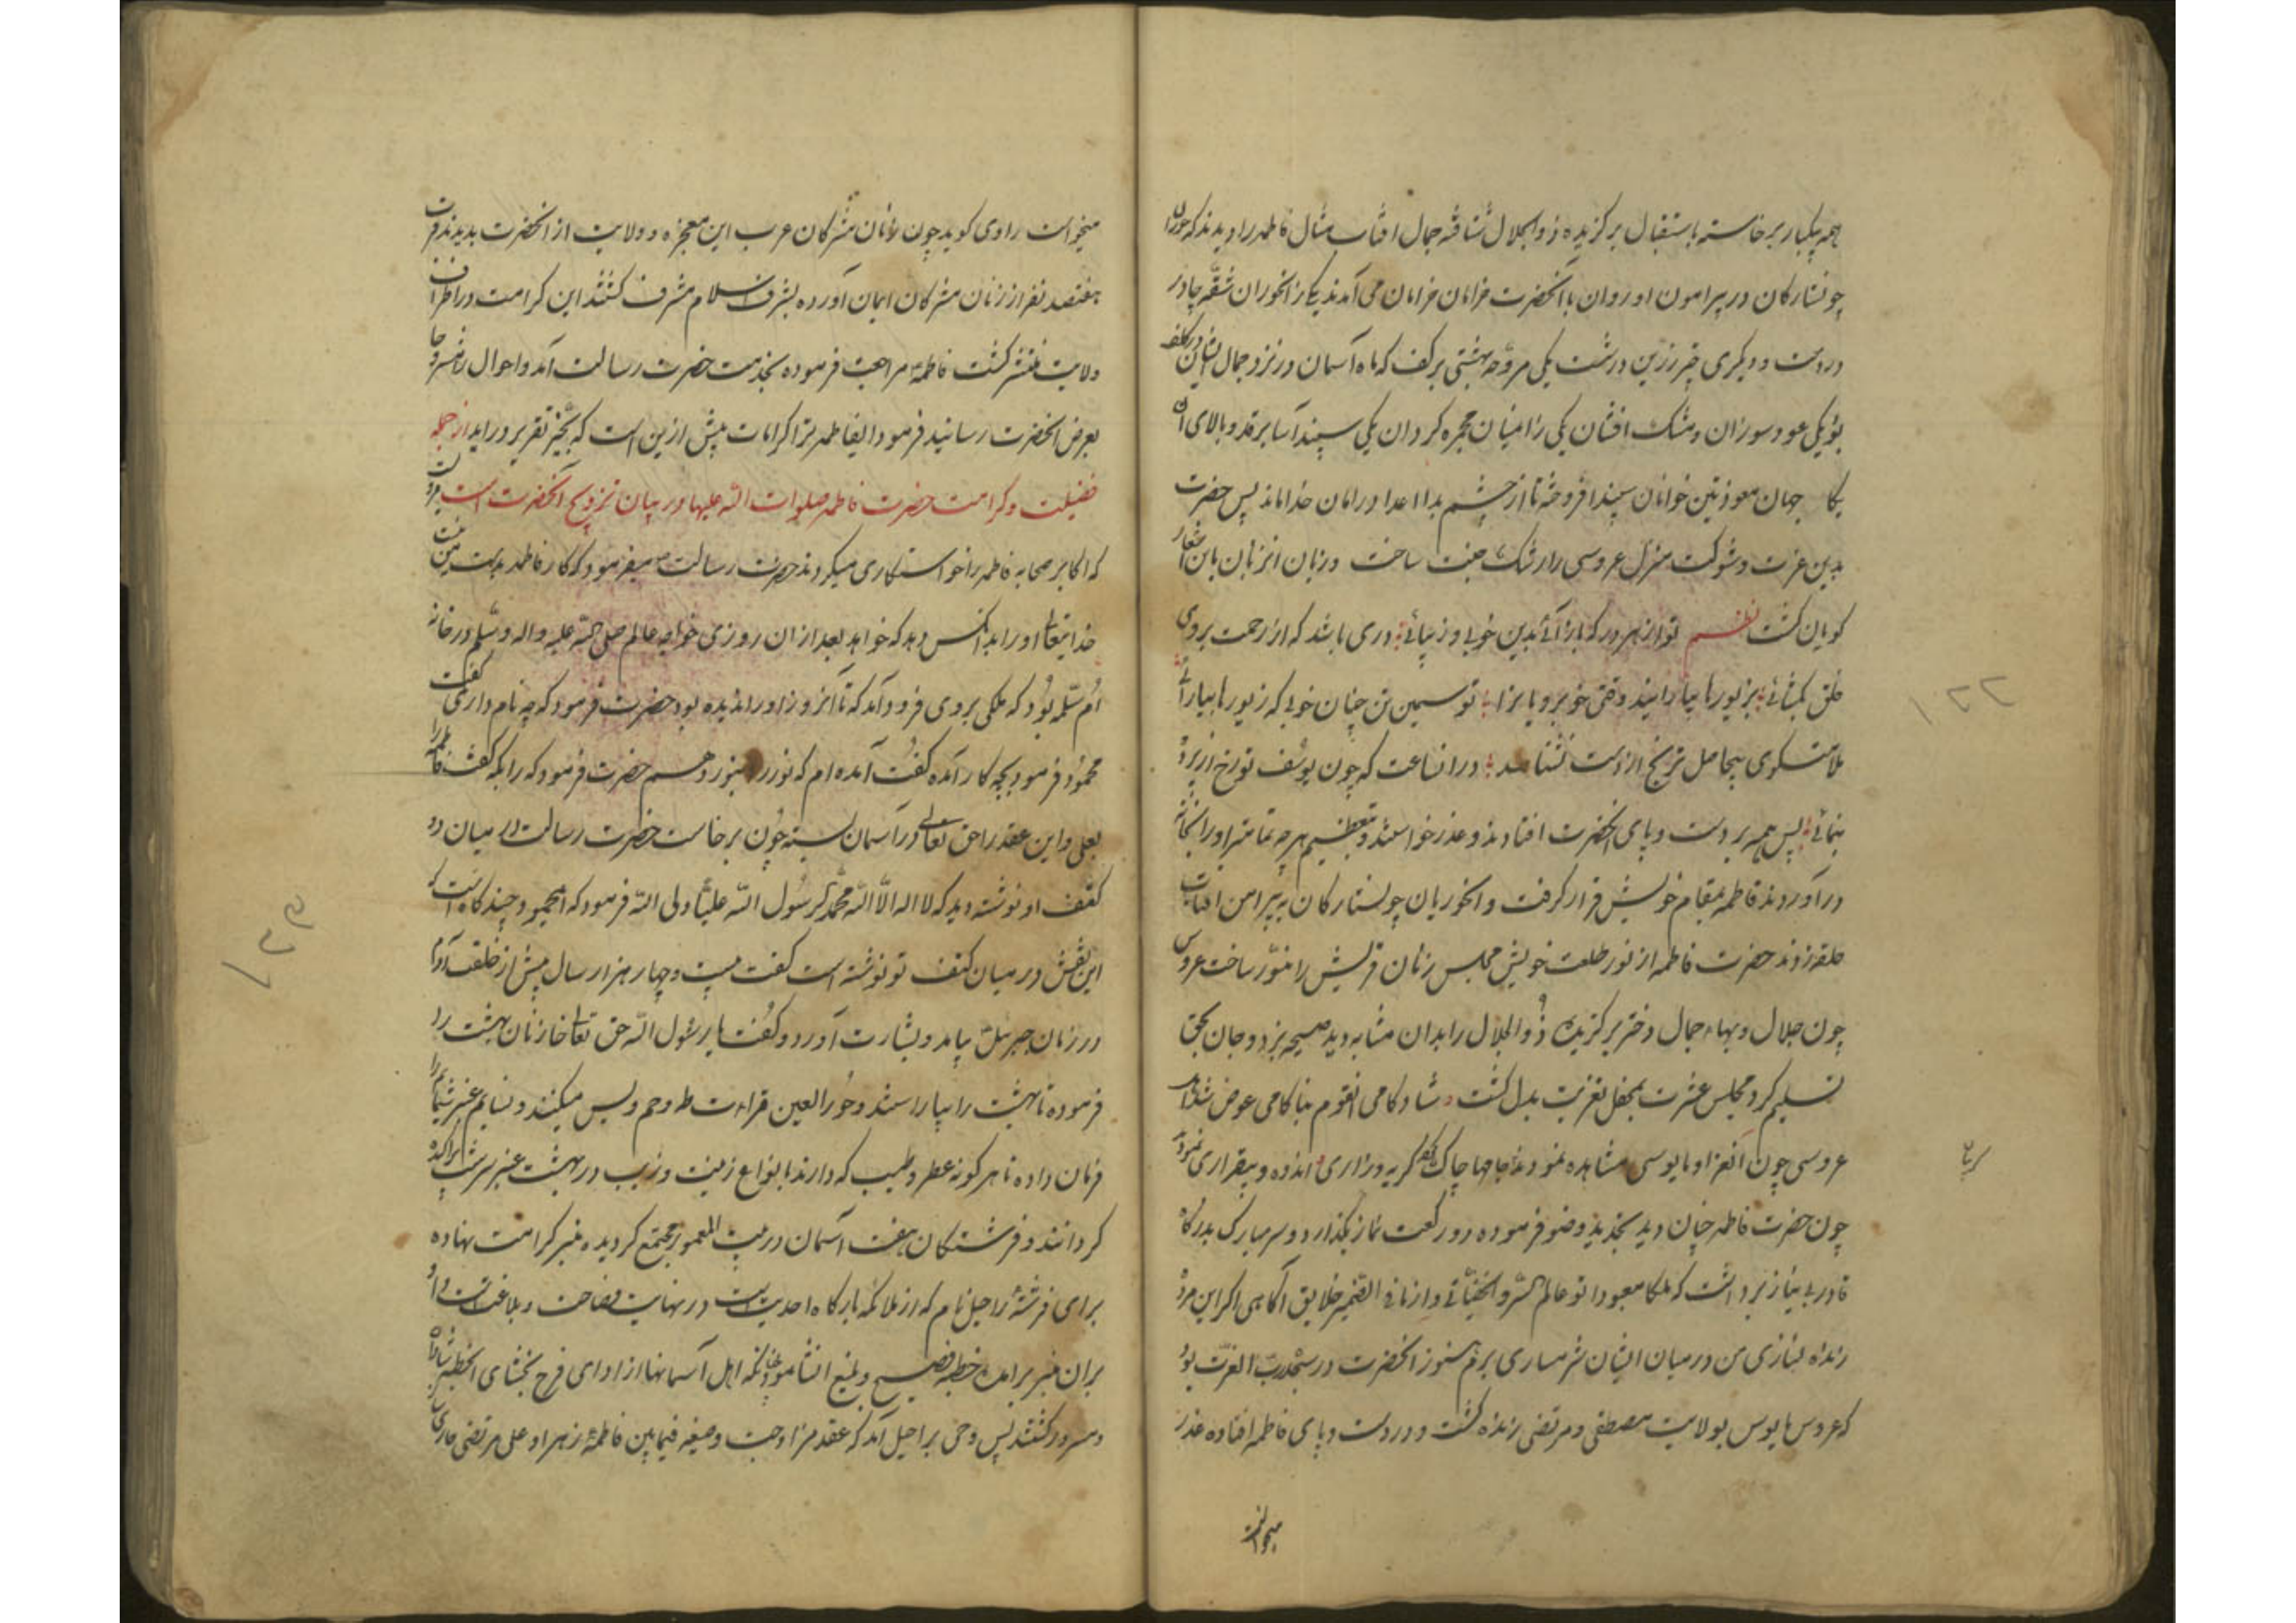 همه یکبار برخاسته باستقبال برکزیده ذوالجلال شتافته جمال افتاب مثال فاطمه را دیدند که حوران
چو ستارکان در پیرامون او روان با آنحضرت خرامان خرامان می آمدند یکی از انحوران شقه چادر
در دست و دیکری چتر زرین در مشت یکی مروحه بهشتی بر کف که ماه آسمان در نزد جمال ایشان در کلف
بو یکی عود سوزان و مشک افشان یکی را میان مجمره کردان یکی سپند آسا بر قد و بالای آن
یکا جهان معوذتین خوانان سپند افروخته تا از چشم بد اعدا در امان خدا ماند پس حضرت
بدین عزت و شوکت منزل عروسی را رشک جنت ساخت و زبان انزنان باین اشعار
کویان کشت نظم تو از هر در که باز آئی بدین خوبی و زیبائی دری باشد که از رحمت بروی
خلق بکشائی بزیورها بیارایند وقتی خوبرویانرا تو سیمین تن چنان خوبی که زیورها بیارائی
ملامتکوی بیحاصل ترنج از دست نشناسد در انساعت که چون یوسف تو رخ از پرده
بنمائی پس همه بر دست و پای انحضرت افتادند و عذر خواستند و بتعظیم هر چه تمامتر او را بخانه
در آوردند فاطمه بمقام خویش قرار کرفت و انحوریان چو ستارکان به پیرامن افتاب
حلقه زدند حضرت فاطمه از نور طلعت خویش مجلس زنان قریش را منور ساخت عروس
چون جلال و بهاء جمال دختر برکزیده ذو الجلال را بدان مشابه دید صیحه بزد و جان بحق
تسلیم کرد مجلس عشرت بمحفل تعزیت بدل کشت و شادکامی انقوم بناکامی عوض شد
عروسی چون انعزا و مایوسی مشاهده نمودند جامها چاک کریه و زاری و اندوه و بیقراری نمودند
چون حضرت فاطمه چنان دید بخندید وضو فرموده دو رکعت نماز بکذارد و سر مبارک بدرکاه
قادر بی نیاز برداشت که ملکا معبودا تو عالم السر و الخفیاتی و از ما فی الضمیر خلایق آکاهی اکر این مرده
زنده نسازی من در میان ایشان شرمساری برم هنوز انحضرت در سجده رب العزت بود
که عروس مایوس بولایت مصطفی و مرتضی زنده کشت و در دست و پای فاطمه افتاده عذر
میخواست
۱۰۲۲
میخواست راوی کوید چون زنان مشرکان عرب این معجزه و ولایت از انحضرت بدیدند قریب
هفتصد نفر از زنان مشرکان ایمان آورده بشرف اسلام مشرف کشتند این کرامت در اطراف
ولایت منتشر کشت فاطمه مراجعت فرموده بخدمت حضرت رسالت آمد و احوال را مشروحا
بعرض انحضرت رسانید فرمود ایفاطمه ترا کرامات بیش ازین است که بحیز تقریر در اید از جمله
فضیلت و کرامت حضرت فاطمه صلوات الله علیها در بیان تزویج انحضرت است مرویست
که اکابر صحابه فاطمه را خواستکاری میکردند حضرت رسالت میفرمود که کار فاطمه بدست من نیست
خدایتعالی او را بدانکس دهد که خواهد بعد از ان روزی خواجه عالم صلی الله علیه و اله و سلم در خانه
ام سلمه بود که ملکی بروی فرود آمد که تا آنروز او را ندیده بود حضرت فرمود که چه نام داری کفت
محمود فرمود بچه کار آمده کفت آمده ام که نور را بنور دهم حضرت فرمود که را بکه کفت فاطمه را
بعلی و این عقد را حق تعالی در آسمان بسته چون برخاست حضرت رسالت در میان دو
کتف او نوشته دید که لا اله الا الله محمد رسول الله علی ولی الله فرمود که ایمحمود چند کاه است که
این نقش در میان کتف تو نوشته است کفت بیست و چهار هزار سال پیش از خلقت آدم
در زمان جبرئیل بیامد و بشارت آورد و کفت یا رسول الله حق تعالی خازنان بهشت را
فرموده تا بهشت را بیاراستند و حور العین قراءت طه و حم و یس میکنند و نسایم عنبر شمایم را
فرمان داده تا هر کونه عطر و طیب که دارند بانواع زینت و زیب در بهشت عنبر سرشت پراکنده
کردانند و فرشتکان هفت آسمان در بیت المعمور مجتمع کردیده منبر کرامت نهاده
برای فرشته راحیل نام که از ملائکه بارکاه احدیت است در نهایت فصاحت و بلاغت است و او
بران منبر برامده خطبه فصیح و بلیغ انشا نمود چنانکه اهل آسمانها از ادای فرح بخشای انخطبه شادان
و مسرور کشتند پس وحی براحیل آمد که عقد مزاوجت و صیغه فیما بین فاطمه زهرا و علی مرتضی جاری